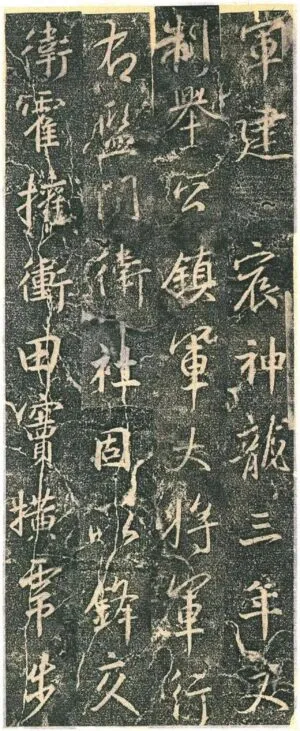 軍建宸神龍三年又
制舉公鎮軍大將軍行
右監門衛社固以鋒交
衛霍擁衝田竇橫帶步